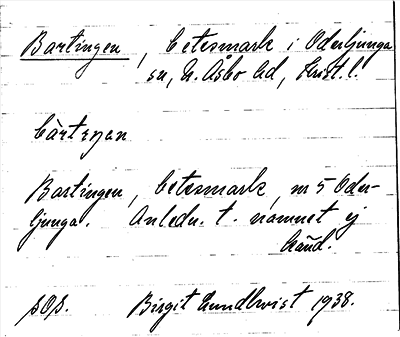 Bartingen, betesmark i Oderljunga
sn, N. Åsbo hd, Krist. l.
bàrtıŋən
Bartingen, betesmark, nr 5 Oder-
ljunga. Anledn. t. namnet ej
känd.
sOs. Birgit Lundkvist 1938.